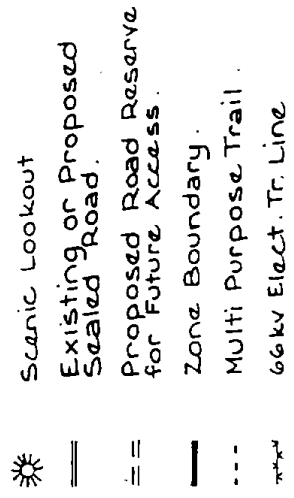 Scenic Lookout
Existing or Proposed
Sealed Road.
Proposed Road Reserve
for Future Access.
Zone Boundary.
Multi Purpose Trail.
66kv Elect. Tr. Line